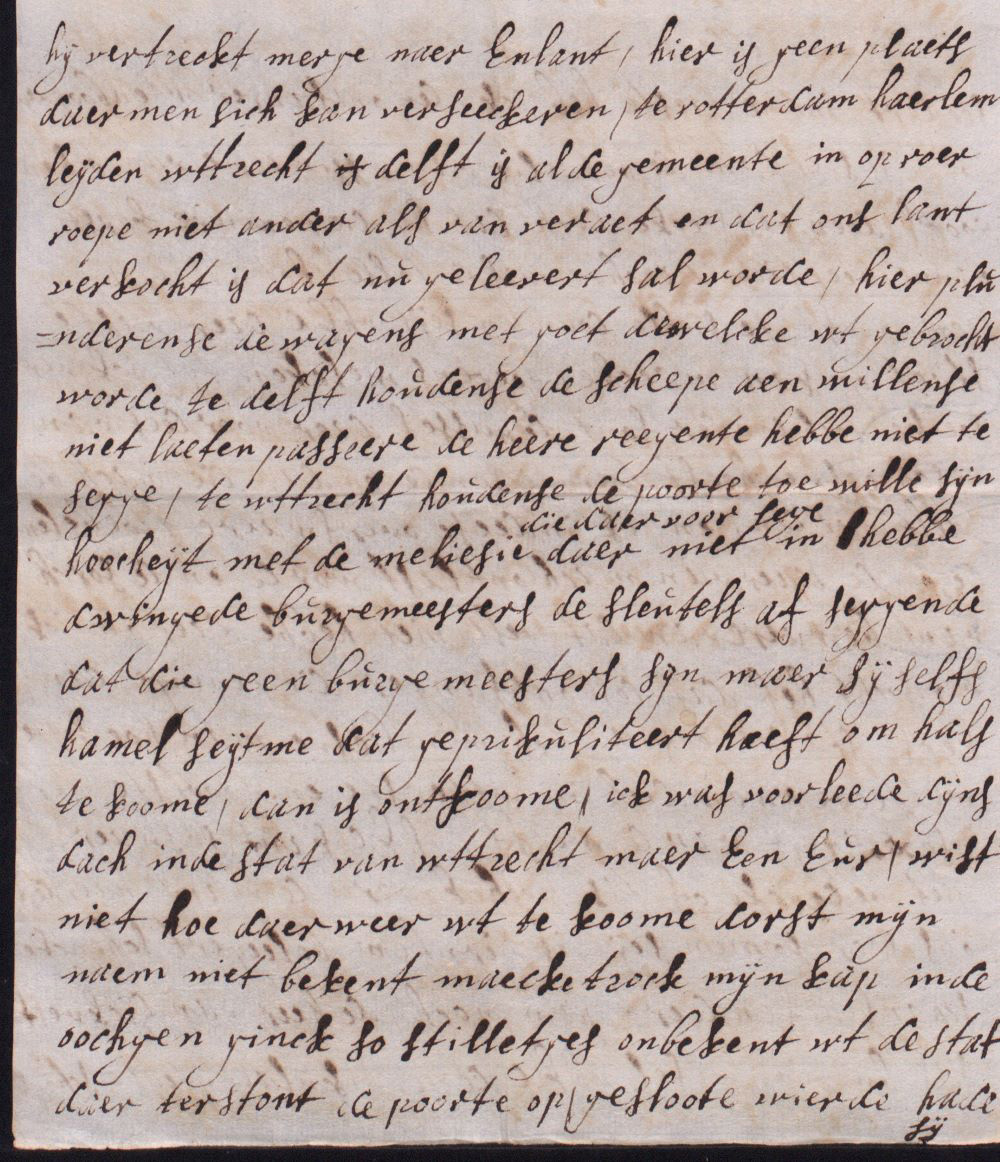 hij vertreckt merge naer Enlant / hier is geen plaets
daer men sich kan verseeckeren / te rotterdam haerlem
leijden wttrecht delft is al de gemeente in oproer
roepe niet ander als van veraet en dat ons lant
verkocht is dat nu geleevert sal worde / hier plu
=nderense de wagens met goet dewelcke wt gebrocht
worde te delft houdense de scheepe aen willense
niet laeten passeere de heere reegente hebbe niet te
segge / te wttrecht houdense de poorte toe wille sijn
die daer voor
hoocheijt met de meliesie daer niet in hebbe
dwingede burgemeesters de sleutels af seggende
dat die geen burgemeesters sijn maer sij selfs
hamel seijtme dat geprikuliteert heeft om hals
te koome / dan is ontkoome / ick was voorleede dijns
dach inde stat van wttrecht maer Een Eur / wist
niet hoe daer weer wt te koome dorst mijn
naem niet bekent maecke trock mijn kap inde
oochgen ginck so stilletges onbekent wt de stat
daer terstont de poorte op / gesloote wierde hade
sij